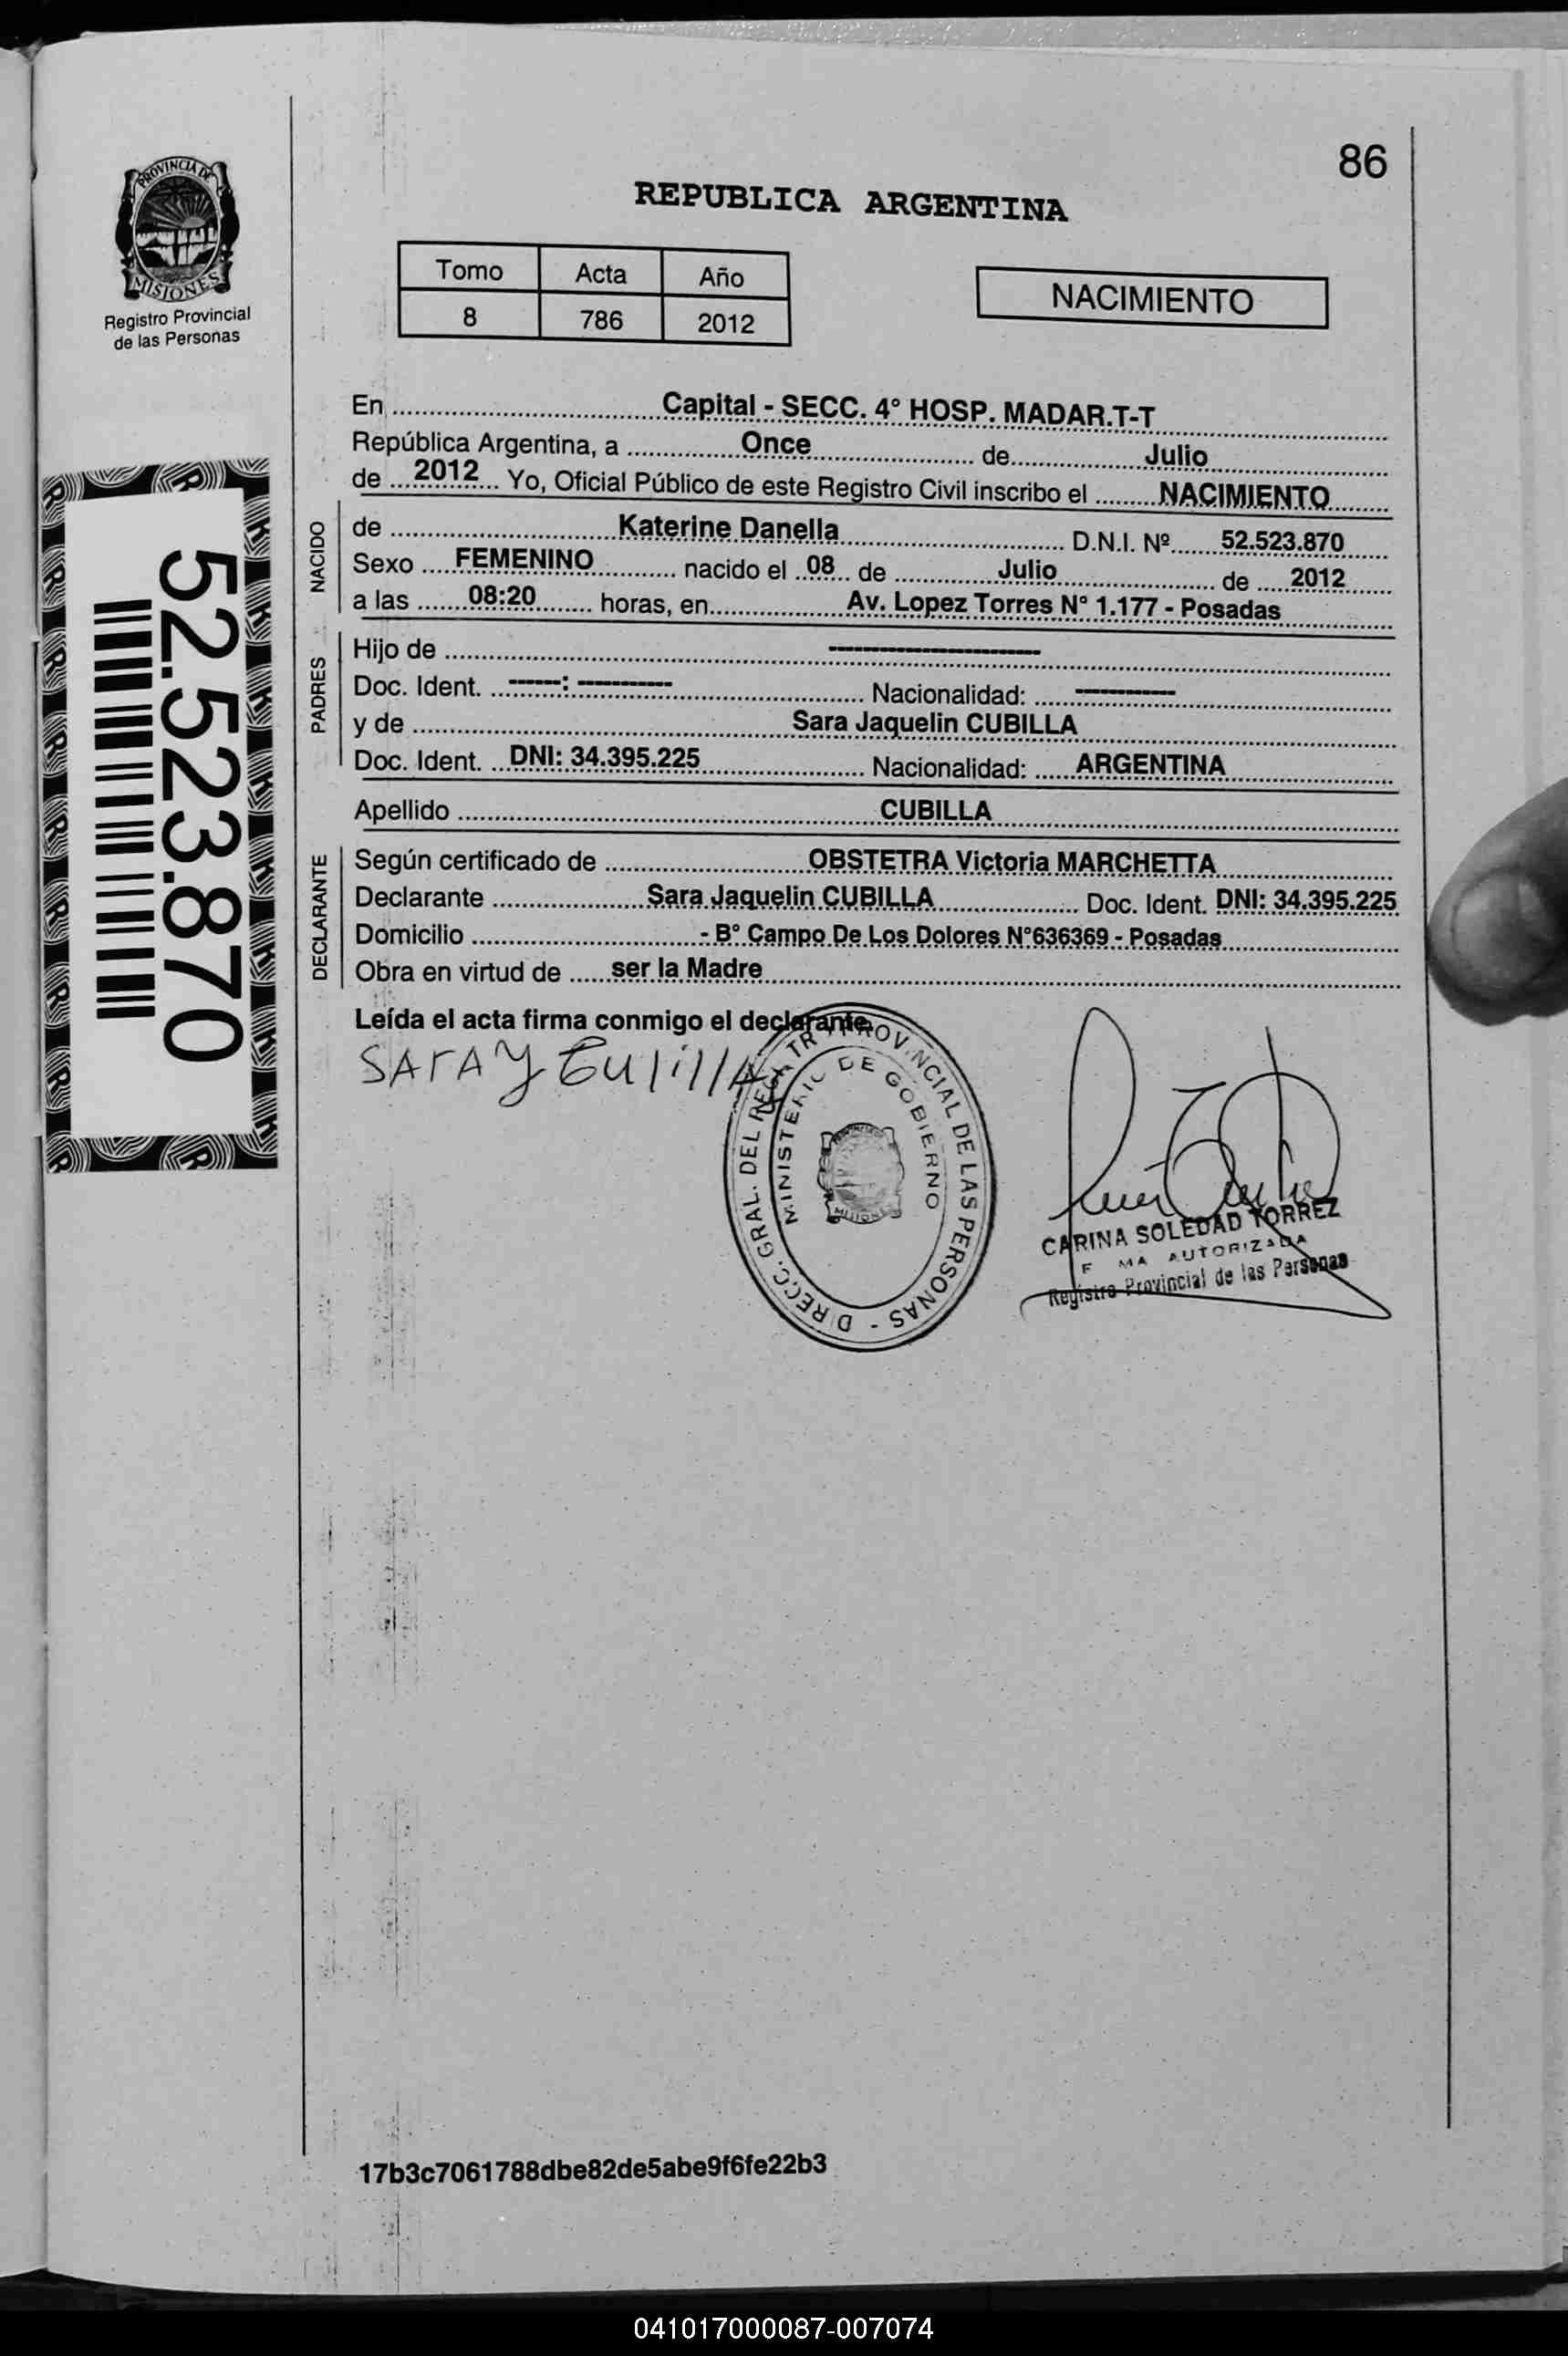 86
PROVINCIA DE
MISIONES
Registro Provincial
de las Personas
REPUBLICA ARGENTINA
Tomo Acta Año
8 786 2012
NACIMIENTO
En Capital - SECC. 4° HOSP. MADAR.T-T
República Argentina, a Once de Julio
de 2012 Yo, Oficial Público de este Registro Civil inscribo el NACIMIENTO
NACIDO
de Katerine Danella D.N.I. Nº 52.523.870
Sexo FEMENINO nacido el 08 de Julio de 2012
a las 08:20 horas, en Av. Lopez Torres N° 1.177 - Posadas
PADRES
Hijo de --------------------
Doc. Ident. ------: ----------- Nacionalidad: -----------
y de Sara Jaquelin CUBILLA
Doc. Ident. DNI: 34.395.225 Nacionalidad: ARGENTINA
Apellido CUBILLA
DECLARANTE
Según certificado de OBSTETRA Victoria MARCHETTA
Declarante Sara Jaquelin CUBILLA Doc. Ident. DNI: 34.395.225
Domicilio - B° Campo De Los Dolores N°636369 - Posadas
Obra en virtud de ser la Madre
Leída el acta firma conmigo el declarante.
SArAy
DIRECC. GRAL. DEL REGISTRO PROVINCIAL DE LAS PERSONAS -
MINISTERIO DE GOBIERNO
MISIONES
CARINA SOLEDAD TORREZ
F MA AUTORIZADA
Registro Provincial de las Personas
52.523.870
17b3c7061788dbe82de5abe9f6fe22b3
041017000087-007074